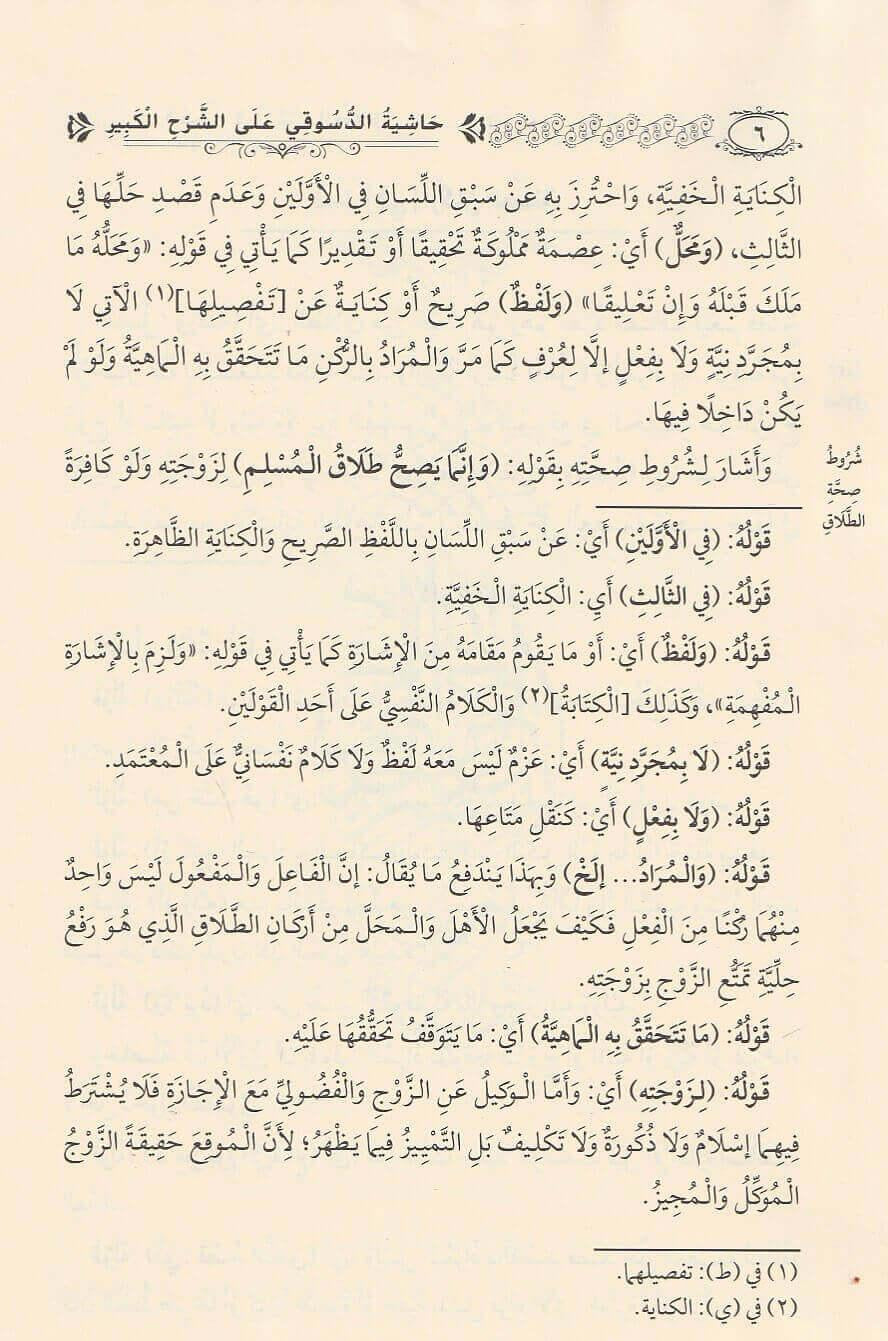 ٦
حَاشِيَةُ الدُّسُوقِي عَلَى الشَّرْحِ الْكَبِيرِ
الْكِنَايَةِ الْخَفِيَّةِ، وَاحْتُرِزَ بِهِ عَنْ سَبْقِ اللِّسَانِ فِي الْأَوَّلَيْنِ وَعَدَمِ قَصْدِ حَلِّهَا فِي
الثَّالِثِ، (وَمَحَلٌّ) أَيْ: عِصْمَةٌ مَمْلُوكَةٌ تَحْقِيقًا أَوْ تَقْدِيرًا كَمَا يَأْتِي فِي قَوْلِهِ: «وَمَحَلُّهُ مَا
مَلَكَ قَبْلَهُ وَإِنْ تَعْلِيقًا» (وَلَفْظٌ) صَرِيحٌ أَوْ كِنَايَةٌ عَنْ [تَفْصِيلِهَا](١) الْآتِي لَا
بِمُجَرَّدِ نِيَّةٍ وَلَا بِفِعْلٍ إلَّا لِعُرْفٍ كَمَا مَرَّ وَالْمُرَادُ بِالرُّكْنِ مَا تَتَحَقَّقُ بِهِ الْمَاهِيَّةُ وَلَوْ لَمْ
يَكُنْ دَاخِلًا فِيهَا.
وَأَشَارَ لِشُرُوطِ صِحَّتِهِ بِقَوْلِهِ: (وَإِنَّمَا يَصِحُّ طَلَاقُ الْمُسْلِمِ) لِزَوْجَتِهِ وَلَوْ كَافِرَةً
شُرُوطُ
صِحَّةِ
الطَّلَاقِ
قَوْلُهُ: (فِي الْأَوَّلَيْنِ) أَيْ: عَنْ سَبْقِ اللِّسَانِ بِاللَّفْظِ الصَّرِيحِ وَالْكِنَايَةِ الظَّاهِرَةِ.
قَوْلُهُ: (فِي الثَّالِثِ) أَيِ: الْكِنَايَةِ الْخَفِيَّةِ.
قَوْلُهُ: (وَلَفْظٌ) أَيْ: أَوْ مَا يَقُومُ مَقَامَهُ مِنَ الْإِشَارَةِ كَمَا يَأْتِي فِي قَوْلِهِ: «وَلَزِمَ بِالْإِشَارَةِ
الْمُفْهِمَةِ»، وَكَذَلِكَ [الْكِتَابَةُ](٢) وَالْكَلَامُ النَّفْسِيُّ عَلَى أَحَدِ الْقَوْلَيْنِ.
قَوْلُهُ: (لَا بِمُجَرَّدِ نِيَّةٍ) أَيْ: عَزْمٌ لَيْسَ مَعَهُ لَفْظٌ وَلَا كَلَامٌ نَفْسَانِيٌّ عَلَى الْمُعْتَمَدِ.
قَوْلُهُ: (وَلَا بِفِعْلٍ) أَيْ: كَنَقْلِ مَتَاعِهَا.
قَوْلُهُ: (وَالْمُرَادُ... إلَخْ) وَبِهَذَا يَنْدَفِعُ مَا يُقَالُ: إنَّ الْفَاعِلَ وَالْمَفْعُولَ لَيْسَ وَاحِدٌ
مِنْهُمَا رُكْنًا مِنَ الْفِعْلِ فَكَيْفَ يَجْعَلُ الْأَهْلَ وَالْمَحَلَّ مِنْ أَرْكَانِ الطَّلَاقِ الَّذِي هُوَ رَفْعُ
حِلِّيَّةِ تَمَتُّعِ الزَّوْجِ بِزَوْجَتِهِ.
قَوْلُهُ: (مَا تَتَحَقَّقُ بِهِ الْمَاهِيَّةُ) أَيْ: مَا يَتَوَقَّفُ تَحَقُّقُهَا عَلَيْهِ.
قَوْلُهُ: (لِزَوْجَتِهِ) أَيْ: وَأَمَّا الْوَكِيلُ عَنِ الزَّوْجِ وَالْفُضُولِيِّ مَعَ الْإِجَازَةِ فَلَا يُشْتَرَطُ
فِيهِمَا إسْلَامٌ وَلَا ذُكُورَةٌ وَلَا تَكْلِيفٌ بَلِ التَّمْيِيزُ فِيمَا يَظْهَرُ؛ لِأَنَّ الْمُوقِعَ حَقِيقَةً الزَّوْجُ
الْمُوَكِّلُ وَالْمُجِيزُ.
(١) في (ط): تفصيلهما.
(٢) في (ي): الكناية.